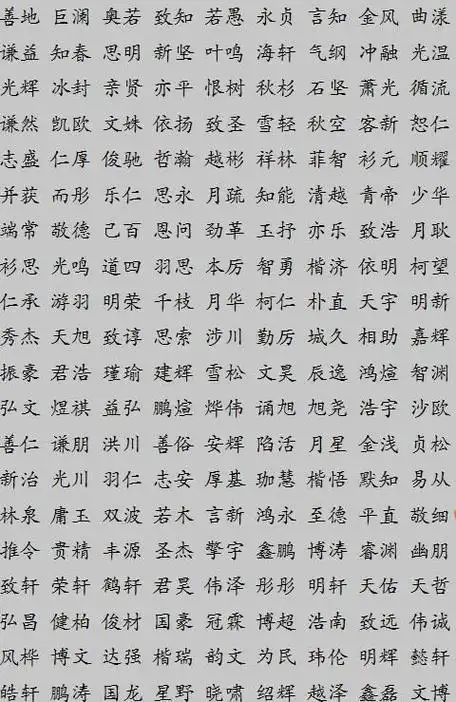 善地 巨澜 奥若 致知 若愚 永贞 言知 金风 曲漾
谦益 知春 思明 新坚 叶鸣 海轩 气纲 冲融 光温
光辉 冰封 亲贤 亦平 恨树 秋杉 石坚 萧光 循流
谦然 凯欧 文姝 依扬 致圣 雪轻 秋空 客新 恕仁
志盛 仁厚 俊驰 哲瀚 越彬 祥林 菲智 衫元 顺耀
并获 而彤 乐仁 思永 月疏 知能 清越 青帝 少华
端常 敬德 己百 恩问 劲革 玉抒 亦乐 致浩 月耿
衫思 光鸣 道四 羽思 本厉 智勇 楷济 依明 柯望
仁承 游羽 明荣 千枝 月华 柯仁 朴直 天宇 明新
秀杰 天旭 致谆 思索 涉川 勤厉 城久 相助 嘉辉
振豪 君浩 瑾瑜 建辉 雪松 文昊 辰逸 鸿煊 智渊
弘文 煜祺 益弘 鹏煊 烨伟 诵旭 旭尧 浩宇 沙欧
善仁 谦朋 洪川 善俗 安辉 陷活 月星 金浅 贞松
新治 光川 羽仁 志安 厚基 珈慧 楷悟 默知 易从
林泉 庸玉 双波 若木 言新 鸿永 至德 平直 敬细
推令 贵精 丰源 圣杰 擎宇 鑫鹏 博涛 睿渊 幽朋
致轩 荣轩 鹤轩 君昊 伟泽 彤彤 明轩 天佑 天哲
弘昌 健柏 俊材 国豪 冠霖 博超 浩南 致远 伟诚
风桦 博文 达强 楷瑞 韵文 为民 玮伦 明辉 懿轩
皓轩 鹏涛 国龙 星野 晓啸 绍辉 越泽 鑫磊 文博